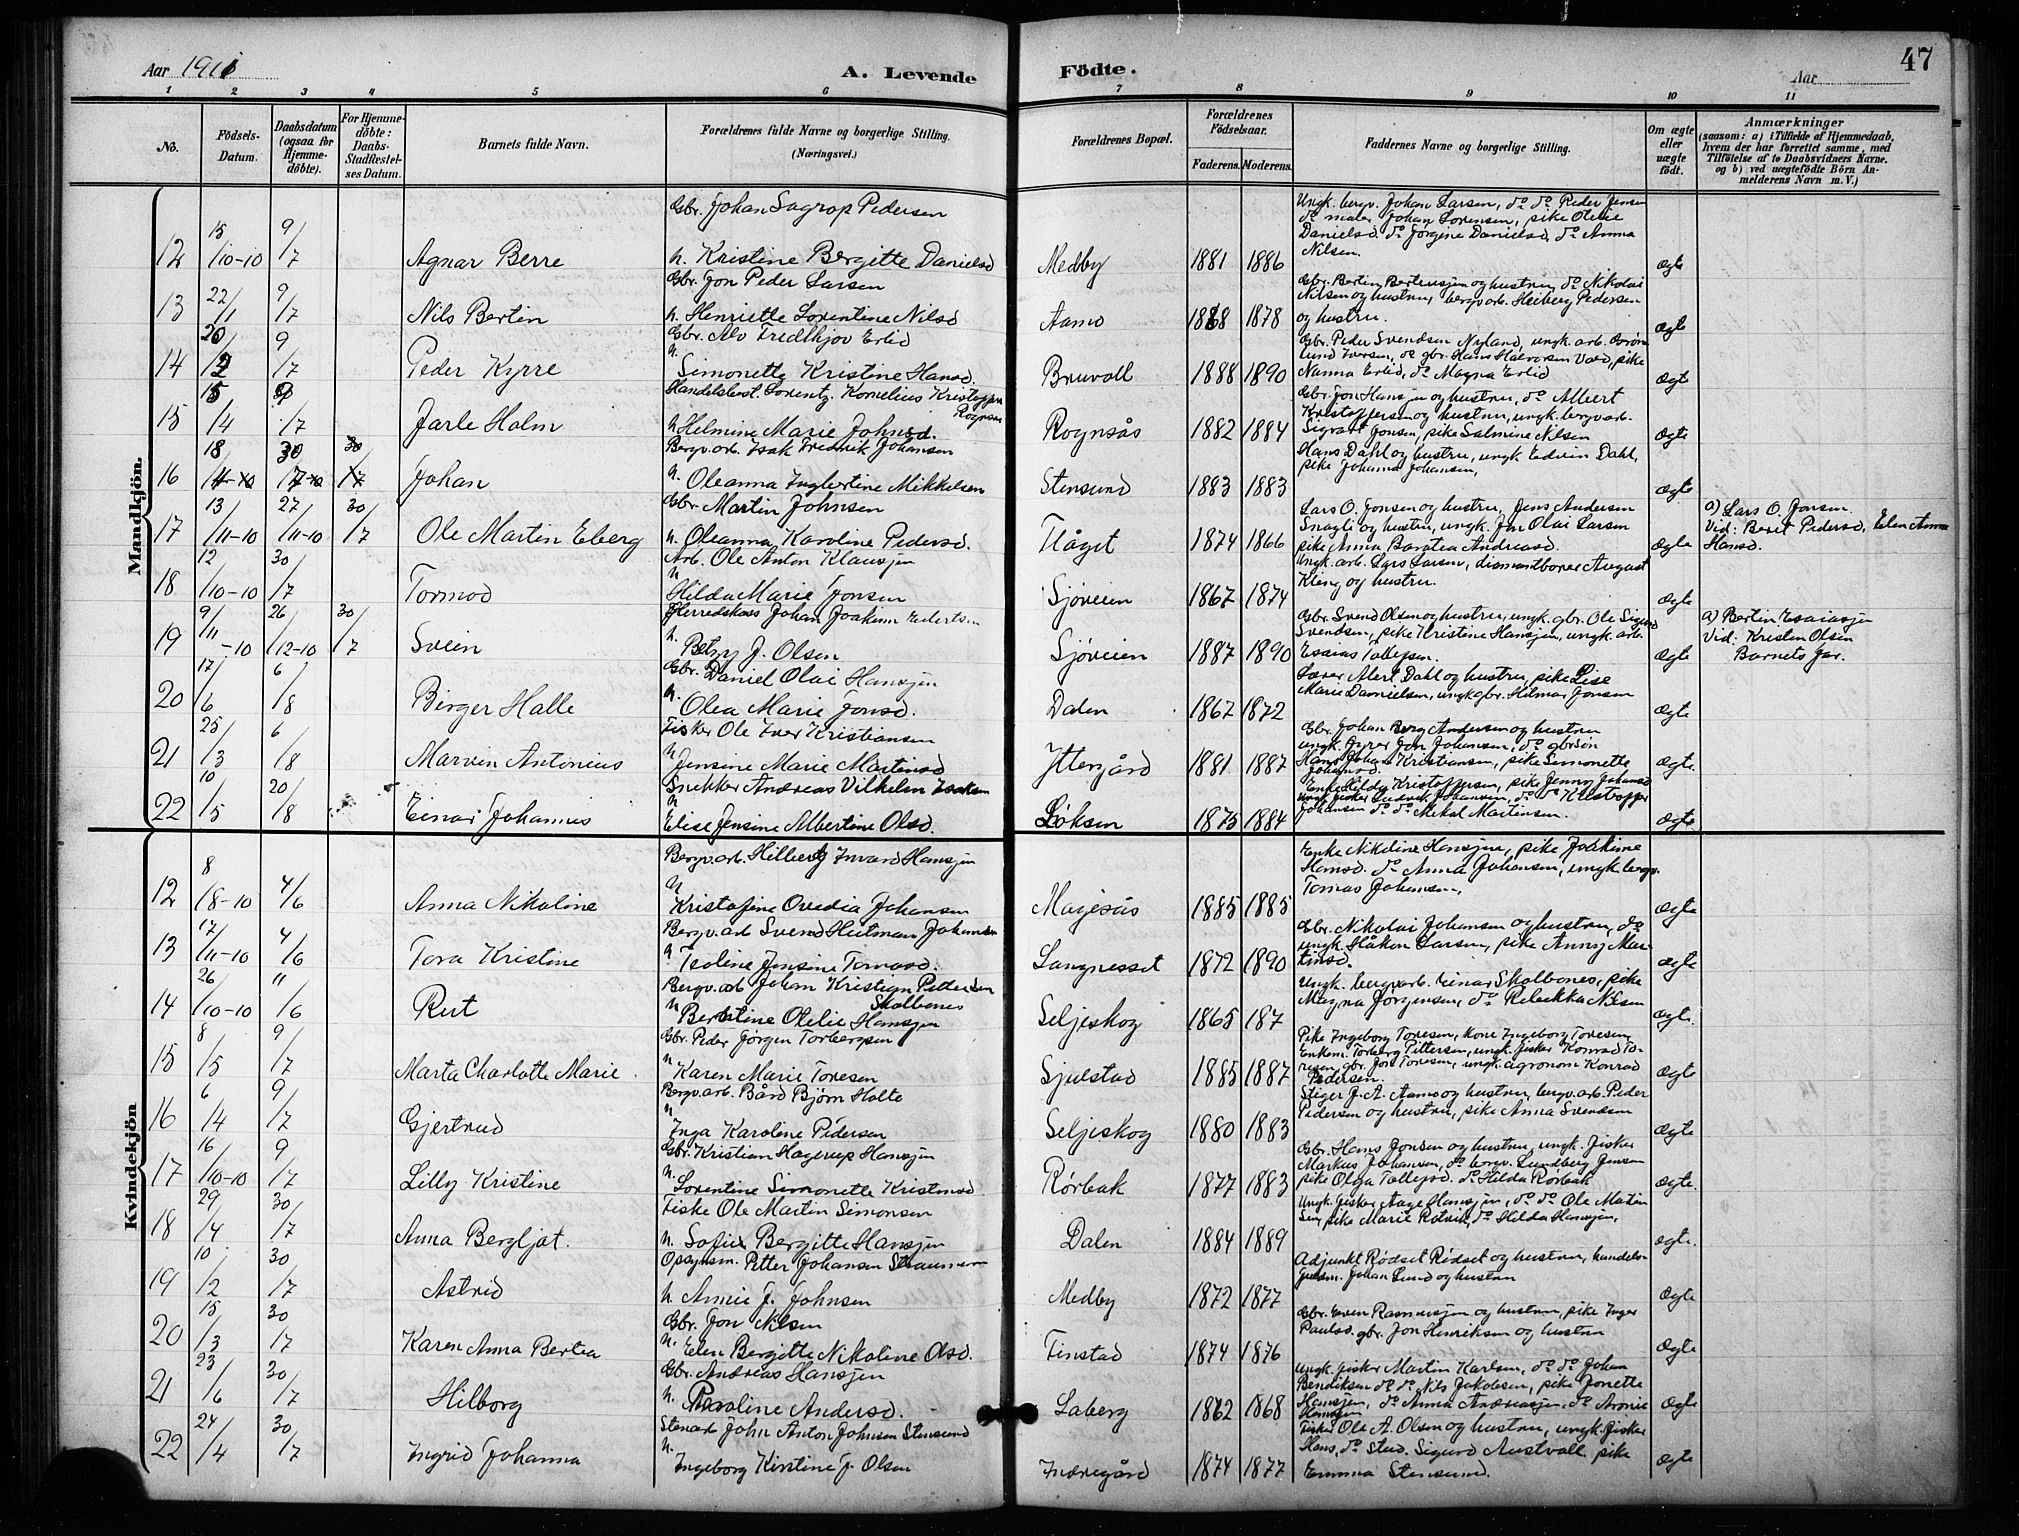 Aar 1911
A. Levende
Födte.
Aar
47
1 2 3 4 5 6 7 8 9 10 11
No.
Födsels-Datum.
Daabsdatum (ogsaa for Hjemme-döbte).
For Hjemme-döbte: Daabs-Stadfæstel-ses Datum.
Barnets fulde Navn.
Forældrenes fulde Navne og borgerlige Stilling. (Næringsvei.)
Forældrenes Bopæl.
Forældrenes Födselsaar.
Faderens. Moderens.
Faddernes Navne og borgerlige Stilling.
Om ægte eller uægte födt.
Anmærkninger
(saasom: a) i Tilfælde af Hjemmedaab, hvem der har forrettet samme, med Tilföielse af to Daabsvidners Navne. og b) ved uægtefödte Börn Anmelderens Navn m. V.)
Mandkjön.
12 15/10-10 9/7 Agnar Berre
Gbr. Johan Sagrop Pedersen
h. Kristine Bergitte Danielsd
Medby 1881 1886
Ungk. bergv. Johan Larsen, do do Peder Jensen
do maler Johan Sorensen, pike Oleue
Danielsd. do Jørgine Danielsd, do Anna
Nilsen.
Ægte
13 22/1 9/7 Nils Bertin
Gbr. Jon Peder Larsen
h. Henriette Lorentine Nilsd
Aamo 1868 1878
Gbr. Bertin Bertevsjen og hustru, do Nikolai
Nilsen og hustru, bergv.arb. Heiberg Pedersen
og hustru.
Ægte
14 20/2 9/7 Peder Kyrre
Gbr. Alv Fredthjov Erlid
h. Simonette Kristine Hansd.
Bruvoll 1888 1890
Gbr. Peder Svendsen Nyland, ungk. arb. Grøn
lund Iversen, do gbr. Hans Halvorsen Vald, pike
Nanna Erlid, do Magna Erlid
Ægte
15 15/4 9/7 Jarle Holm
Handelsbest. Lorentz Kornelius Kristoffer
Rognsaa
h. Helmine Marie Johnsd.
Rognsås 1882 1884
Gbr. Jon Hansjen og hustru, do Albert
Kristoffersen og hustru, ungk. bergv.arb.
Sigvart Jonsen, pike Salmine Nilsen
Ægte
16 18 30/7 30 Johan
Bergv.arb. Isak Fredrik Johansen
h. Oleanna Ingbertine Mikkelsen
Stensund 1883 1883
Hans Dahl og hustru, ungk. Edvin Dahl,
pike Johanna Johansen,
Ægte
17 13/11-10 27/11-10 30/7 Ole Martin Elberg
Gbr. Martin Johnsen
h. Oleanna Karoline Pedersd.
Flåget 1874 1866
Lars O. Jonsen og hustru, Jens Andersen
Snagli og hustru, ungk. Jon Olai Larsen
pike Anna Barotea Andreasd.
Ægte
a) Lars O. Jonsen.
Vid: Beret Pedersd, Elen Anna
Hansd.
18 12/10-10 30/7 Tormod
Arb. Ole Anton Klausjen
h. Hilda Marie Jonsen
Sjøveien 1867 1874
Ungk. arb. Lars Larsen, diamantborer August
Kling og hustru.
Ægte
19 9/11-10 26/12-10 30/7 Svein
Herredskass Johan Joakim Edvertsen
h. Betzy J. Olsen
Sjøveien 1887 1890
Gbr. Svend Olsen og hustru, ungk. gbr. Ole Sigurd
Svendsen, pike Kristine Hansjen, ungk. arb.
Esaias Tollefsen.
Ægte
a) Bertin Esaiasjen
Vid: Kristen Olsen
Barnets far.
20 17/6 6/8 Birger Halle
Gbr. Daniel Olai Hansjen
h. Olea Marie Jonsd.
Dalen 1867 1872
Lærer Alert Dahl og hustru, pike Lise
Marie Danielsen, ungk gbr. Hilmar Jonsen
Ægte
21 25/3 6/8 Marvin Antonius
Fisker Ole Iver Kristiansen
h. Jensine Marie Martinsd
Yttergård 1881 1887
Gbr. Johan Berg Andersen og hustru
ungk. fyrer Jon Johansen, do gbrsøn
Hans Johan Kristiansen, pike Simonette
Johansd.
Ægte.
22 10/5 20/8 Einar Johannes
Snekker Andreas Vilhelm Isaksen
h. Elise Jensine Albertine Olsd.
Løksen 1875 1884
Enke Hilda Kristoffersen, pike Jenny Johansd
ungk. fisker Ludvik Johansen, do do Kristoffer
Johansen do do Mekal Martinsen.
Ægte
Kvindekjön
12 8/8-10 4/6 Anna Nikoline
Bergv.arb. Hilberg Invard Hansjen
h. Kristofine Ovedia Johansen
Magesås 1885 1885
Enke Nikoline Hansjen, pike Joakime
Hansd. do Anna Johansen, ungk. bergv.
Tomas Johansen,
Ægte
13 17/11-10 4/6 Tora Kristine
Bergv.arb Svend Heitman Johansen
h. Tsoline Jensine Tomasd.
Langnesset 1872 1890
Gbr. Nikolai Johansen og hustru, do
ungk. Håkon Larsen, pike Anny Mar
tinsd.
Ægte
14 26/10-10 "/6 Rut
Bergv.arb Johan Kristian Pettersen
Skolbones
h. Berntine Otelie Hansjen
Seljeskog 1865 187
Ungk. bergv.arb. Einar Skolbones, pike
Magna Jørgensen, do Rebekka Nilsen
Ægte.
15 8/5 9/7 Marta Charlotte Marie.
Gbr. Peder Jørgen Torbergsen
h. Karen Marie Toresen
Sjulstad 1885 1887
Pike Ingeborg Toresen, kone Ingeborg Toresen,
Enkem. Torberg Pettersen, ungk. fisker Konrad To-
resen, gbr. Jon Toresen, ungk. agronom Konrad
Pedersen.
Ægte
16 6/4 9/7 Gjertrud
Bergv.arb. Bård Bjørn Holte
h. Inga Karoline Pedersen
Seljeskog 1880 1883
Stiger J. A. Aamo og hustru, bergv.arb. Peder
Pedersen og hustru, pike Anna Svendsen
Ægte
17 16/10-10 9/7 Lilly Kristine
Gbr. Kristian Hagerup Hansjen
h. Lorentine Simonette Kristensd
Rørbak 1877 1883
Gbr. Hans Jonsen og hustru, ungk. fisker
Markus Johansen, do bergv. Lundberg Jensen
pike Olga Tollefsd. do Hilda Rørbak
Ægte.
18 29/4 30/7 Anna Bergljot.
Fiske Ole Martin Simonsen
h. Sofie Bergitte Hansjen
Dalen 1884 1889
Ungk. fisker Aage Hansjen, do do Ole Martin
pike Marie Rotvik, do Hilda Hansjen,
Ægte.
19 10/2 30/7 Astrid
Opsynsm. Petter Johansen Straumsnes
h. Annie J. Johnsen
Medby 1872 1877
Adjunkt Rødset Rødset og hustru, handels
Johan Lund og hustru
Ægte
20 15/3 30/7 Karen Anna Bertea
Gbr. Jon Nilsen
h. Elen Bergitte Nikoline Olsd.
Finstad 1874 1876
Gbr. Even Rasmusjen og hustru, pike Inger
Paulsd. gbr. Jon Henriksen og hustru
Ægte
21 23/6 30/7 Hilborg
Gbr. Andreas Hansjen
h. Pauline Andersd.
Laberg 1862 1868
Ungk. fisker Martin Karlsen, do do Johan
Bendiksen do do Nils Jakobsen, pike Jonette
Hansjen, do Anna Andreasjen, do Aronie
Hansjen
Ægte
22 24/4 30/7 Ingrid Johanna
Stenarb John Anton Johnsen Stensund
h. Ingeborg Kirstine J. Olsen
Indregård 1874 1877
Fisker Ole A. Olsen og hustru, ungk. fisker
Hans, do Stud. Sigurd Austvoll, pike
Emma Stensund.
Ægte